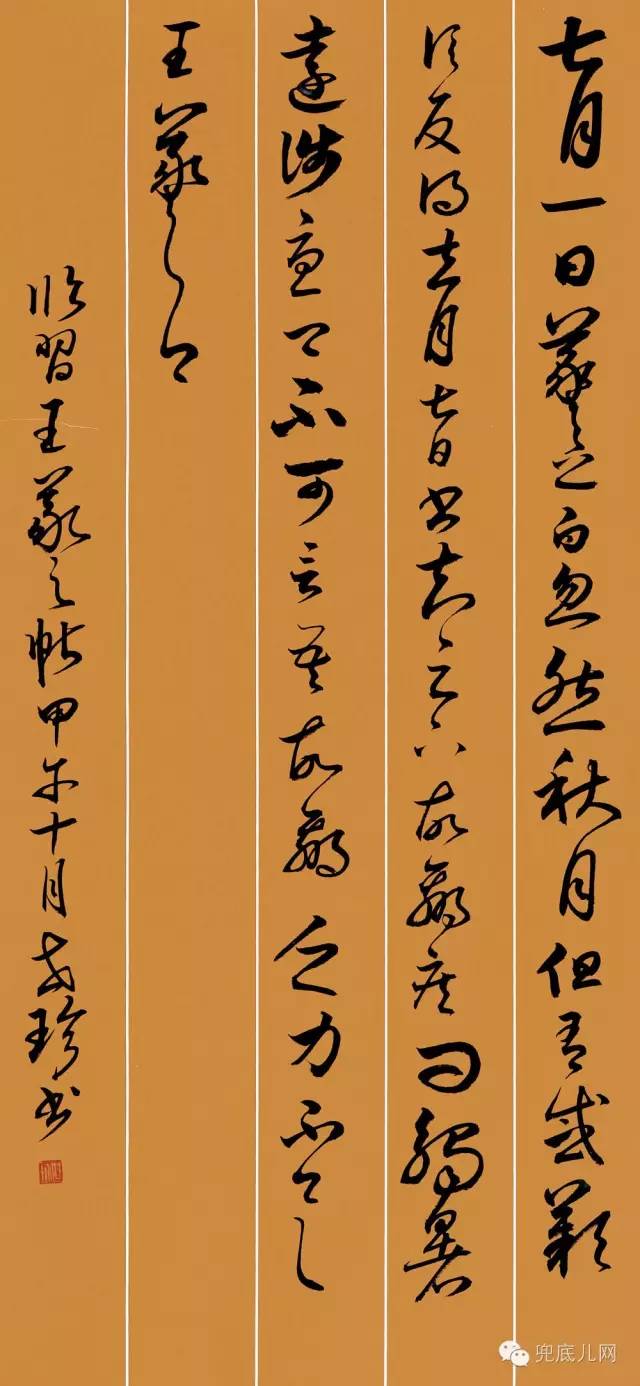 七月一日羲之白忽然秋月但有感歎
信反得去月七日书知足下故羸疾问觸暑
遠涉憂卿不可言吾故羸乏力不
王羲之白
临习王羲之帖甲午十月珍书
兜底儿网